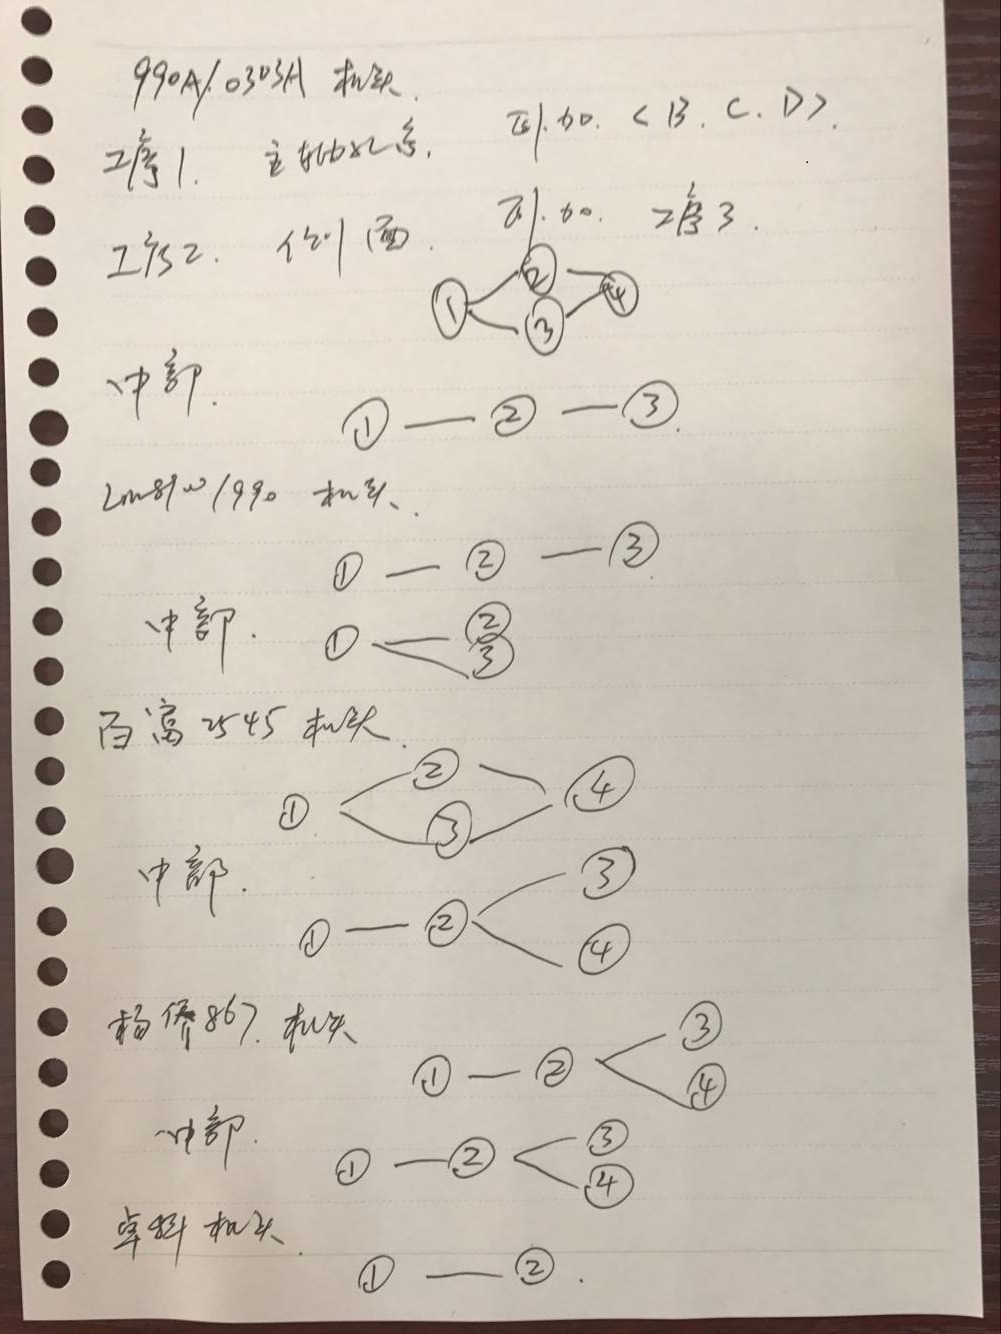 990A/0303A 机头.
工序1. 主轴孔系. 可.60. <B. C. D>.
工序2. 侧面. 可.60. 工序3.
① ② ③ ④
中部.
① — ② — ③
/990 机头.
① — ② — ③
中部. ① ② ③
百富2545 机头.
① ② ③ ④
中部.
① — ② ③ ④
杨侨867. 机头
① — ② ③ ④
中部.
① — ② ③ ④
卓科 机头.
① — ②.